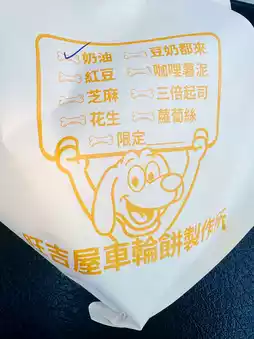 奶油 豆奶都來
紅豆 咖哩薯泥
芝麻 三倍起司
花生 蘿蔔絲
限定
旺吉屋車輪餅製作所